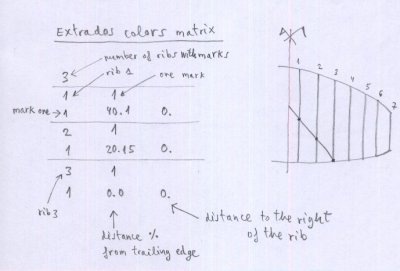 Extrados colors matrix
3 number of ribs with marks
rib 1 one mark
1 1
mark one 1 40.1 0.
2 1
1 20.15 0.
3 1
1 0.0 0.
rib 3
distance % from trailing edge
distance to the right of the rib
1 2 3 4 5 6 7